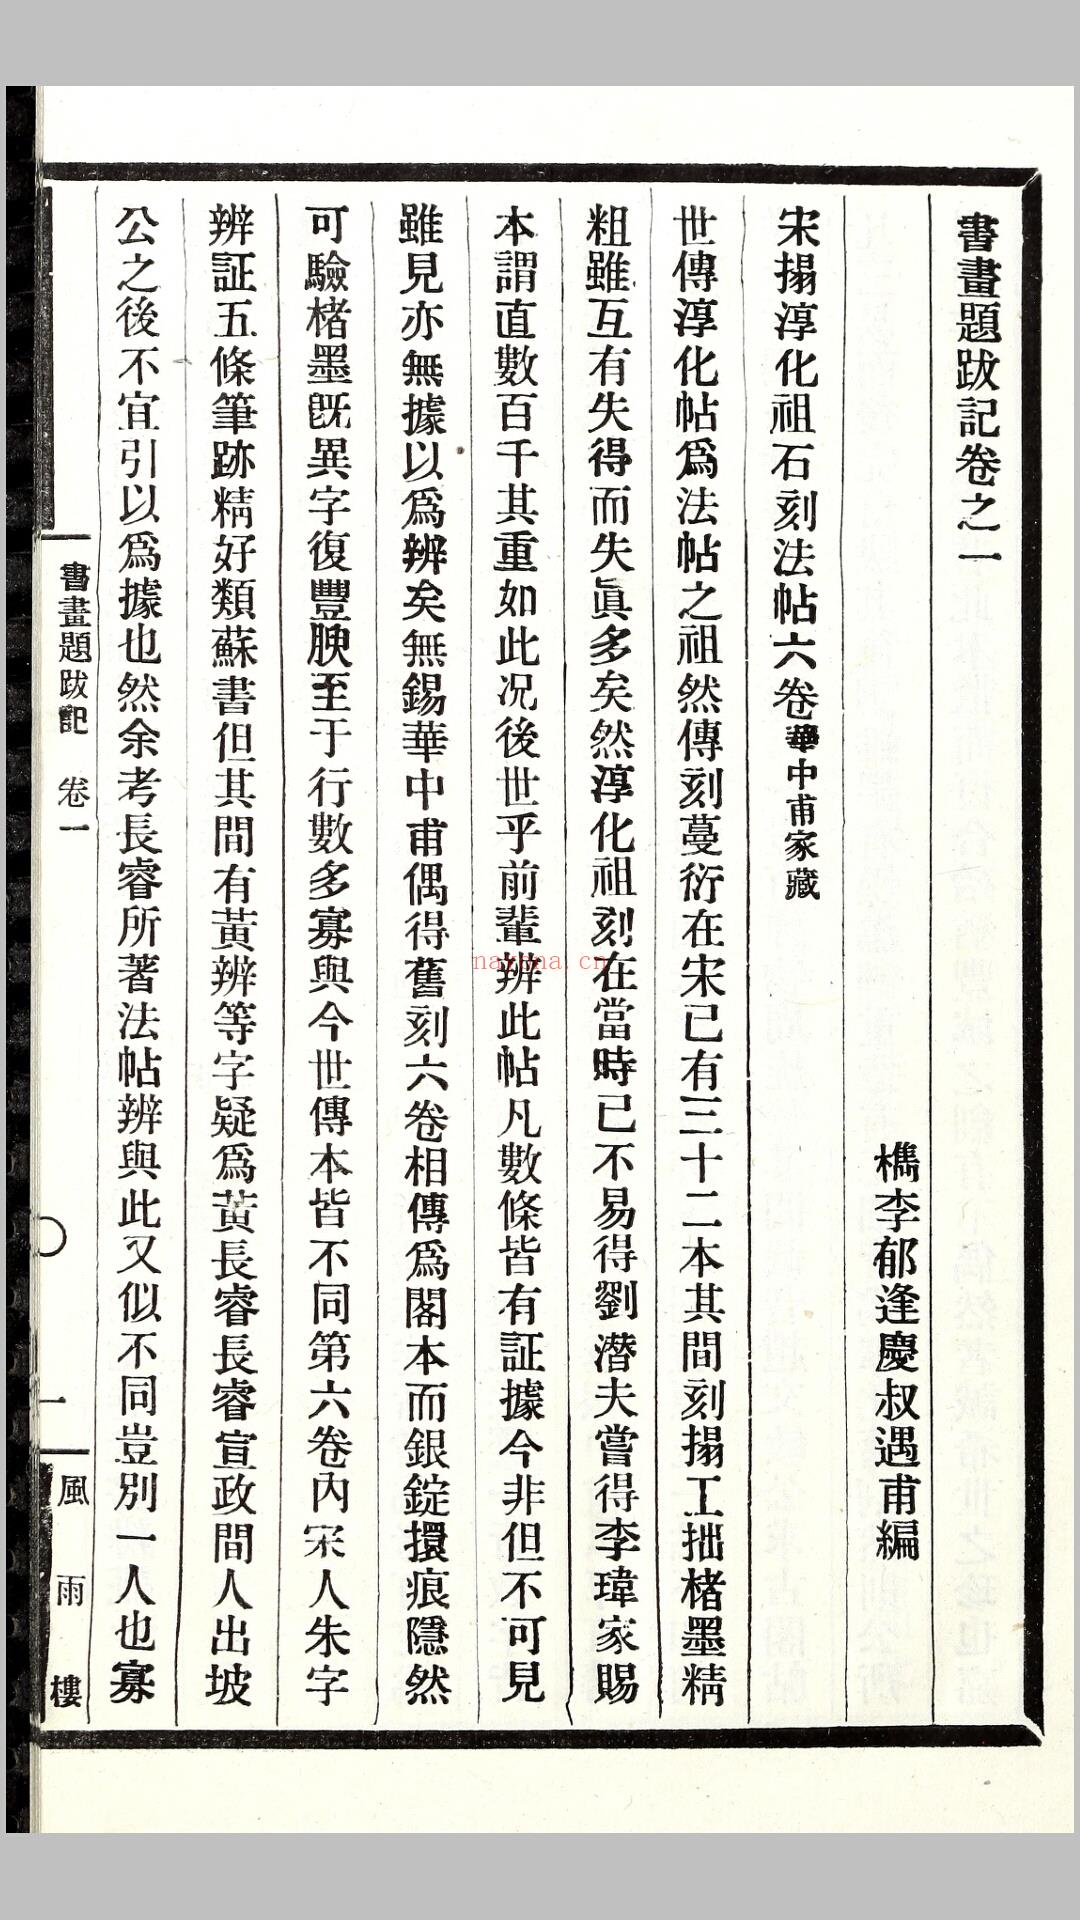 書畫題跋記卷之一
檇李郁逢慶叔遇甫編
宋搨淳化祖石刻法帖六卷華中甫家藏
世傳淳化帖爲法帖之祖然傳刻蔓衍在宋已有三十二本其間刻搨工拙楮墨精
粗雖互有失得而失眞多矣然淳化祖刻在當時已不易得劉潛夫嘗得李瑋家賜
本謂直數百千其重如此况後世乎前輩辨此帖凡數條皆有証據今非但不可見
雖見亦無據以爲辨矣無錫華中甫偶得舊刻六卷相傳爲閣本而銀錠擐痕隱然
可驗楮墨旣異字復豐腴至于行數多寡與今世傳本皆不同第六卷內宋人朱字
辨証五條筆跡精好類蘇書但其間有黃辨等字疑爲黃長睿長睿宣政間人出坡
公之後不宜引以爲據也然余考長睿所著法帖辨與此又似不同豈別一人也寡
書畫題跋記 卷一
一
風雨樓
nayona.cn